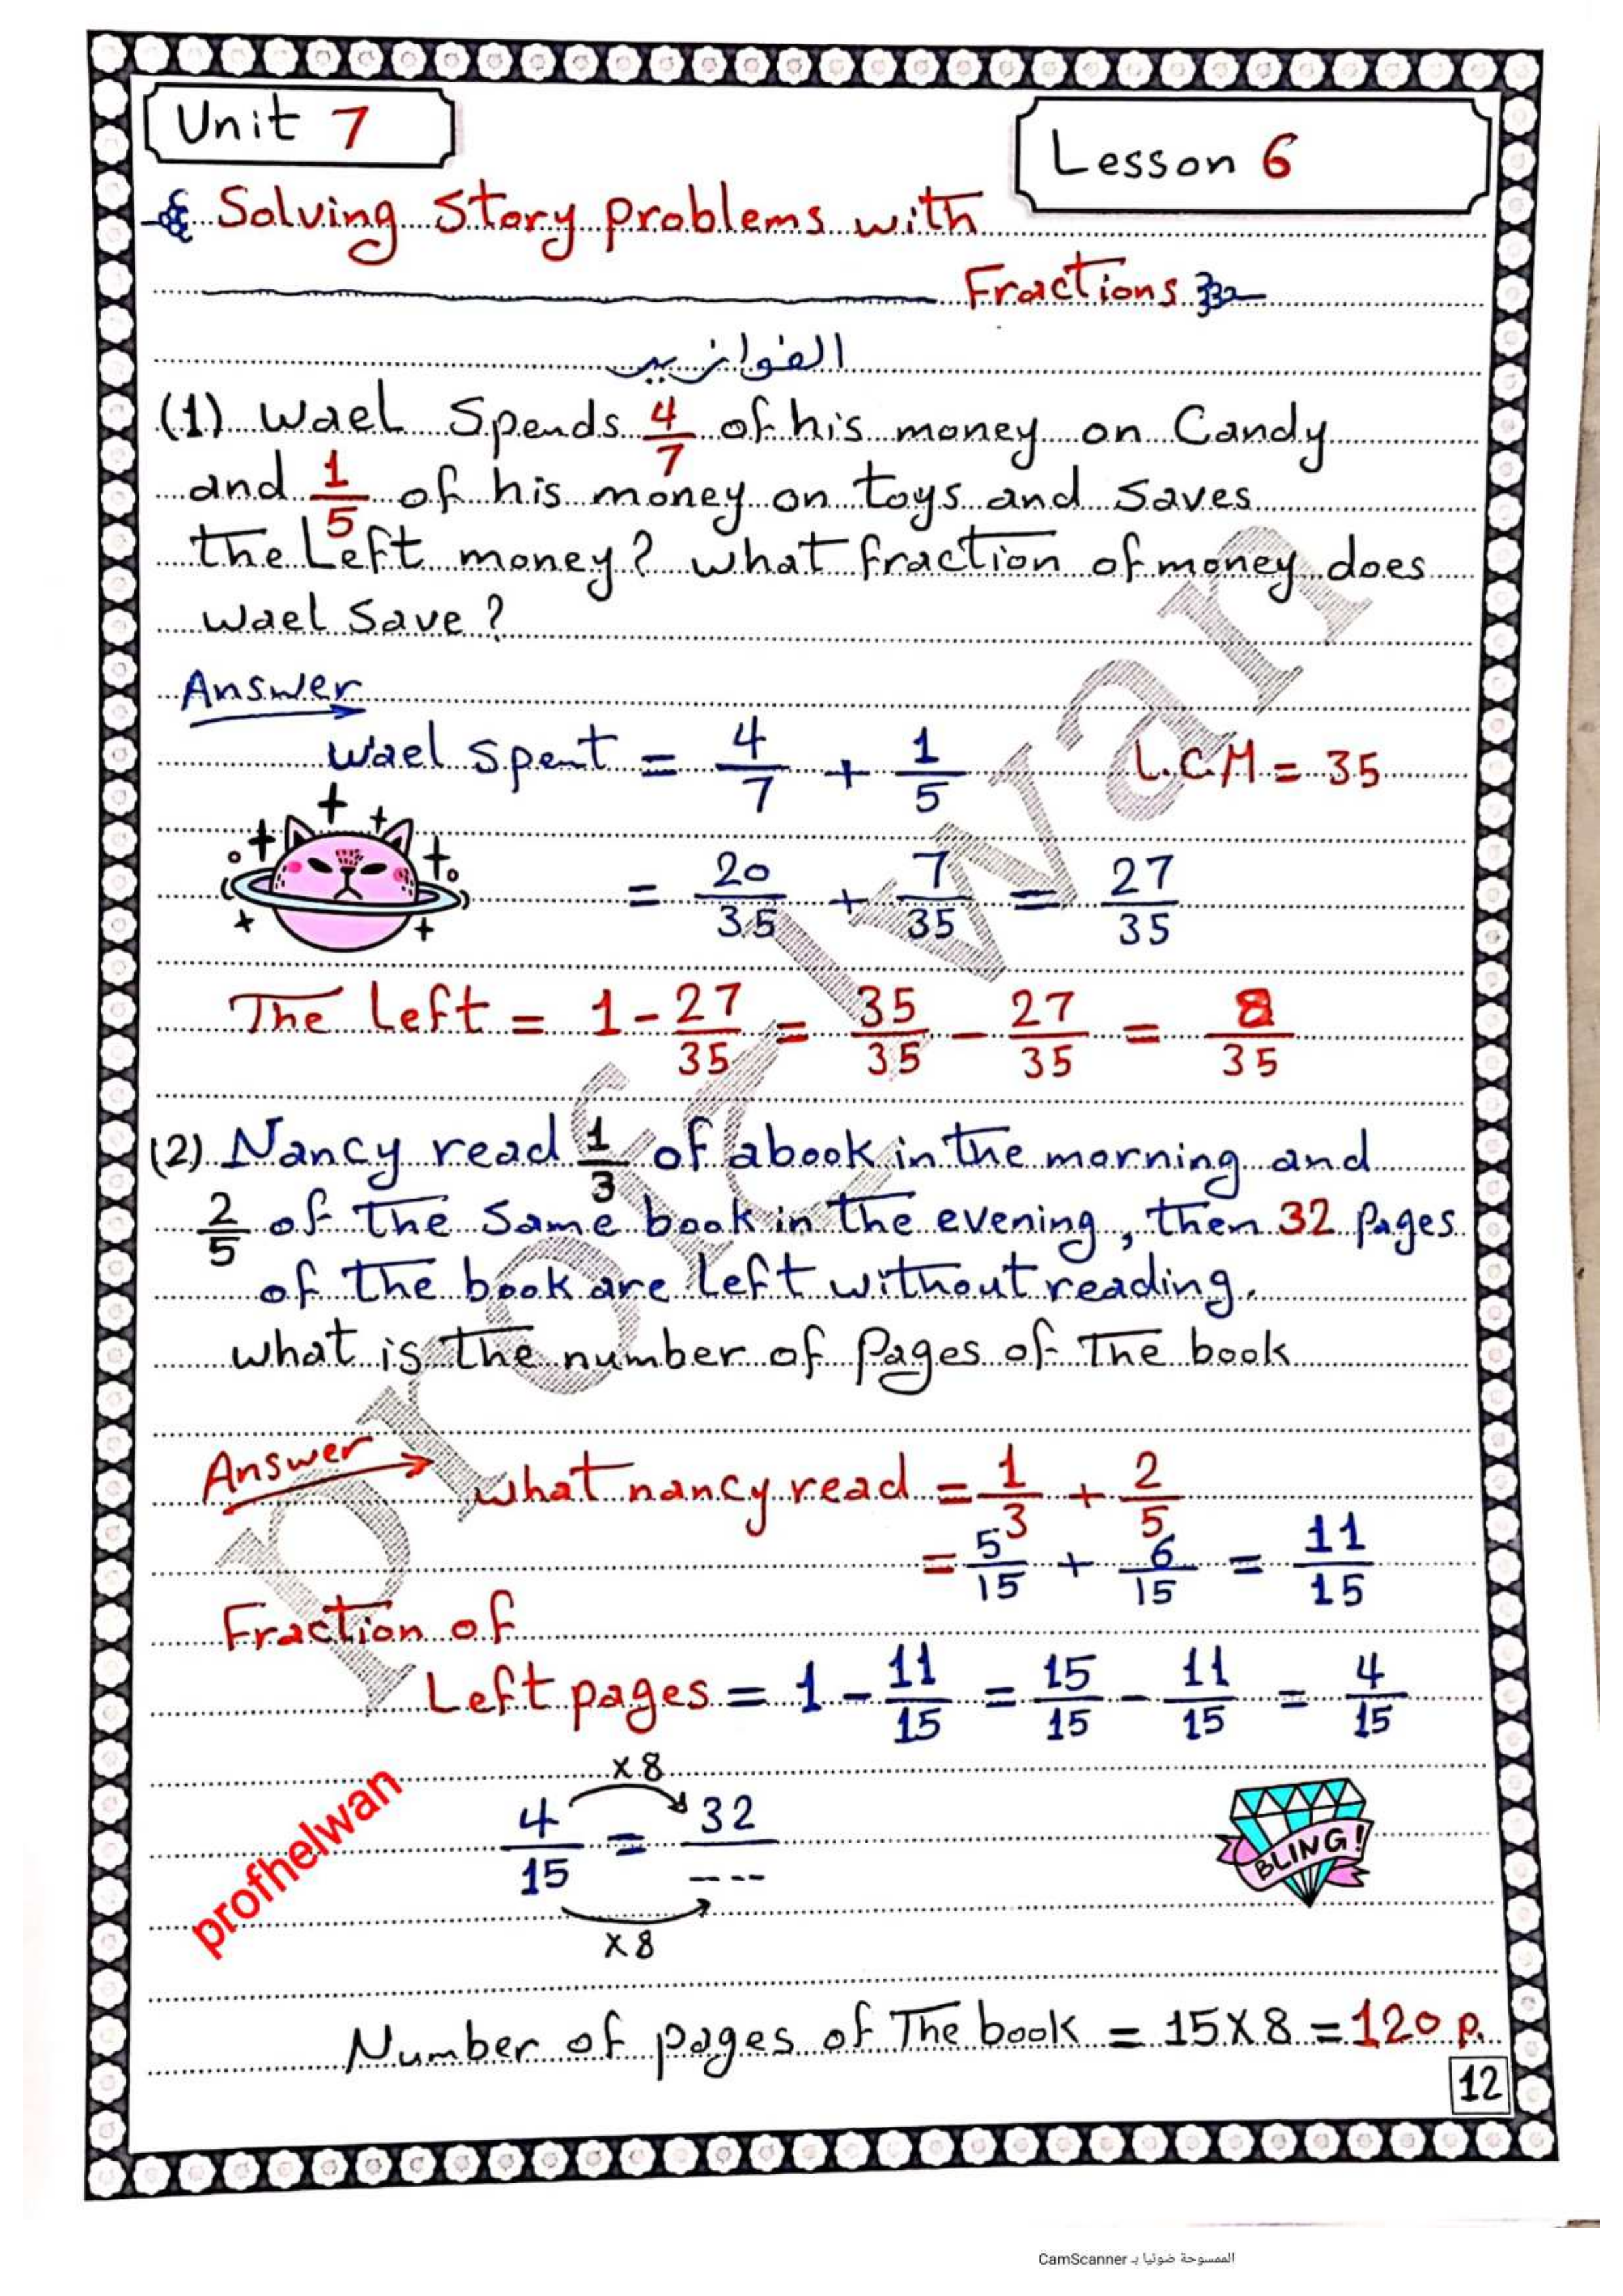 Unit 7
Lesson 6
Solving Story problems with
Fractions
الفوازير
(1) Wael Spends 4/7 of his money on Candy
and 1/5 of his money on toys and saves
the Left money? what fraction of money does
wael Save?
Answer
wael spent = 4/7 + 1/5 L.C.M = 35
= 20/35 + 7/35 = 27/35
The Left = 1 - 27/35 = 35/35 - 27/35 = 8/35
(2) Nancy read 1/3 of a book in the morning and
2/5 of the same book in the evening, then 32 Pages
of the book are left without reading.
what is the number of Pages of The book
Answer what nancy read = 1/3 + 2/5
= 5/15 + 6/15 = 11/15
Fraction of
Left pages = 1 - 11/15 = 15/15 - 11/15 = 4/15
x 8
4/15 = 32/----
x 8
BLING!
profhelwan
Number of pages of The book = 15 x 8 = 120 p.
12
profhelwan
الممسوحة ضوئيا بـ CamScanner